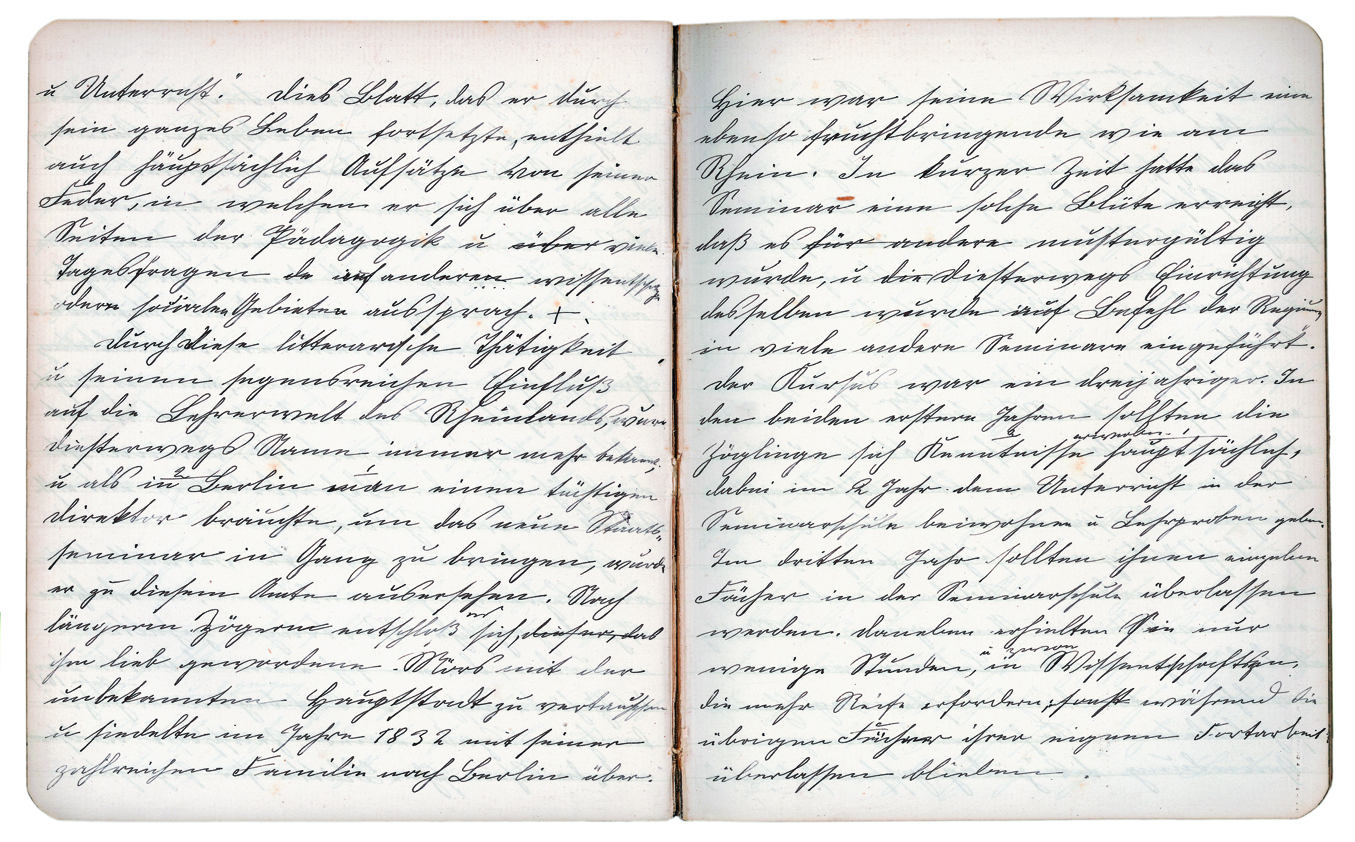 u Unterricht." Dies Blatt, das er durch
sein ganzes Leben fortsetzte, enthielt
auch hauptsächlich Aufsätze von seiner
Feder, in welchen er sich über alle
Seiten der Pädagogik u über viele
Tagesfragen de auf anderen wissentschaftl
odern socialen Gebieten aussprach. +.
Durch diese litterarische Thätigkeit
u seinen segensreichen Einfluß
auf die Lehrerwelt des Rheinlands, wurde
Diesterwegs Name immer mehr bekannt.
u als in Berlin man einen tüchtigen
Direktor brauchte, um das neue Staats-
seminar in Gang zu bringen, wurde
er zu diesem Amte ausersehen. Nach
längerm Zögern entschloß er sich, dieser, das
ihm lieb gewordene Mörs mit der
unbekannten Hauptstadt zu vertauschen
u siedelte im Jahre 1832 mit seiner
zahlreichen Familie nach Berlin über.
Hier war seine Wirksamkeit eine
ebenso fruchtbringende wie am
Rhein. In kurzer Zeit hatte das
Seminar eine solche Blüte erreicht,
daß es für andere mustergültig
wurde, u die Diesterwegs Einrichtung
desselben wurde auf Befehl der Regierung
in viele andere Seminare eingeführt.
Der Kursus war ein dreijähriger. In
den beiden erstern Jahren sollten die
Zöglinge sich Kenntnisse erwerben hauptsächlich,
dabei im 2 Jahr dem Unterricht in der
Seminarschule beiwohnen u Lehrproben geben.
Im dritten Jahr sollten ihnen einzelne
Fächer in der Seminarschule überlassen
werden. Daneben erhielten Sie nur
wenige Stunden, u zwar in Wissentschaften,
die mehr Reife erfordern, sonst während die
übrigen Fächer ihrer eignen Fortarbeit
überlassen blieben.